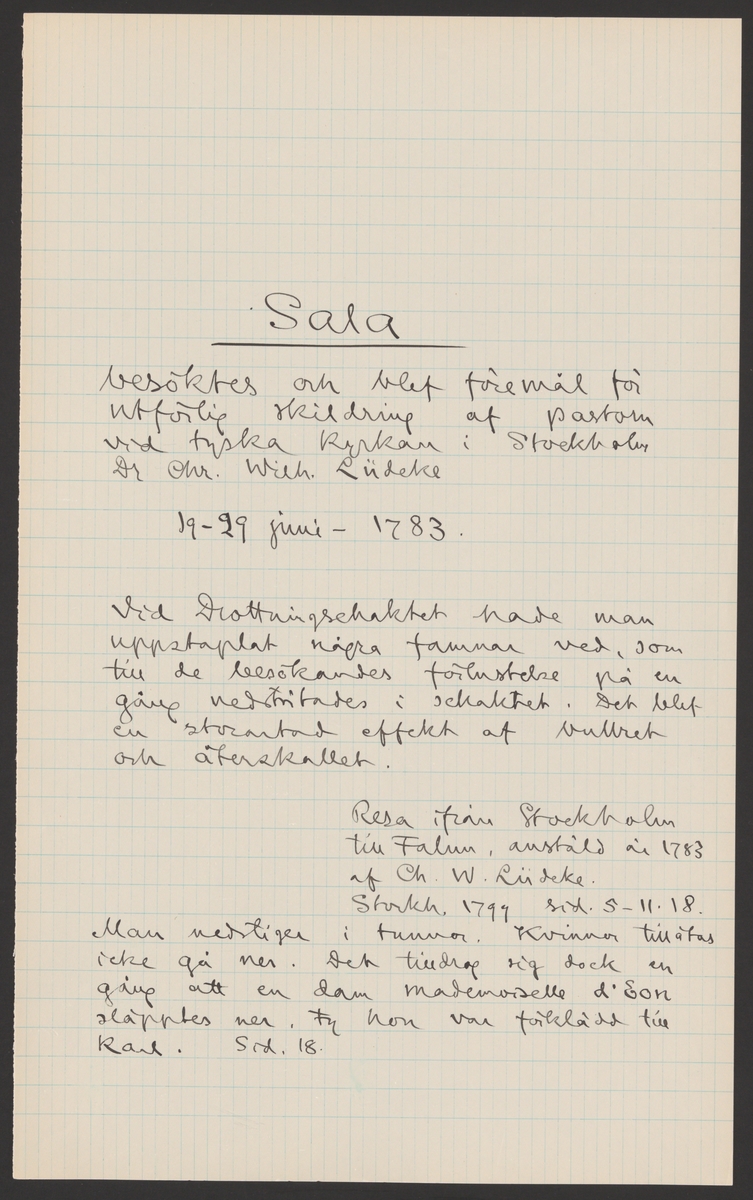 Sala
besöktes och blef föremål för
utförlig skildring af pastorn
vid tyska kyrkan i Stockholm
Dr Chr. Wilh. Lüdeke
19-29 juni - 1783.
Vid Drottningschaktet hade man
uppstaplat några famnar ved, som
till de besökandes förlustelse på en
gång nedstörtades i schaktet. Det blef
en storartad effekt af bullret
och återskallet.
Resa ifrån Stockholm
till Falun, anstäld år 1783
af Ch. W. Lüdeke.
Stockh. 1799 sid. 5-11. 18.
Man nedstiger i tunnor. Kvinnor tillåtas
icke gå ner. Det tilldrog sig dock en
gång att en dam mademoiselle d'Eon
släpptes ner. Ty hon var förklädd till
karl. Sid. 18.